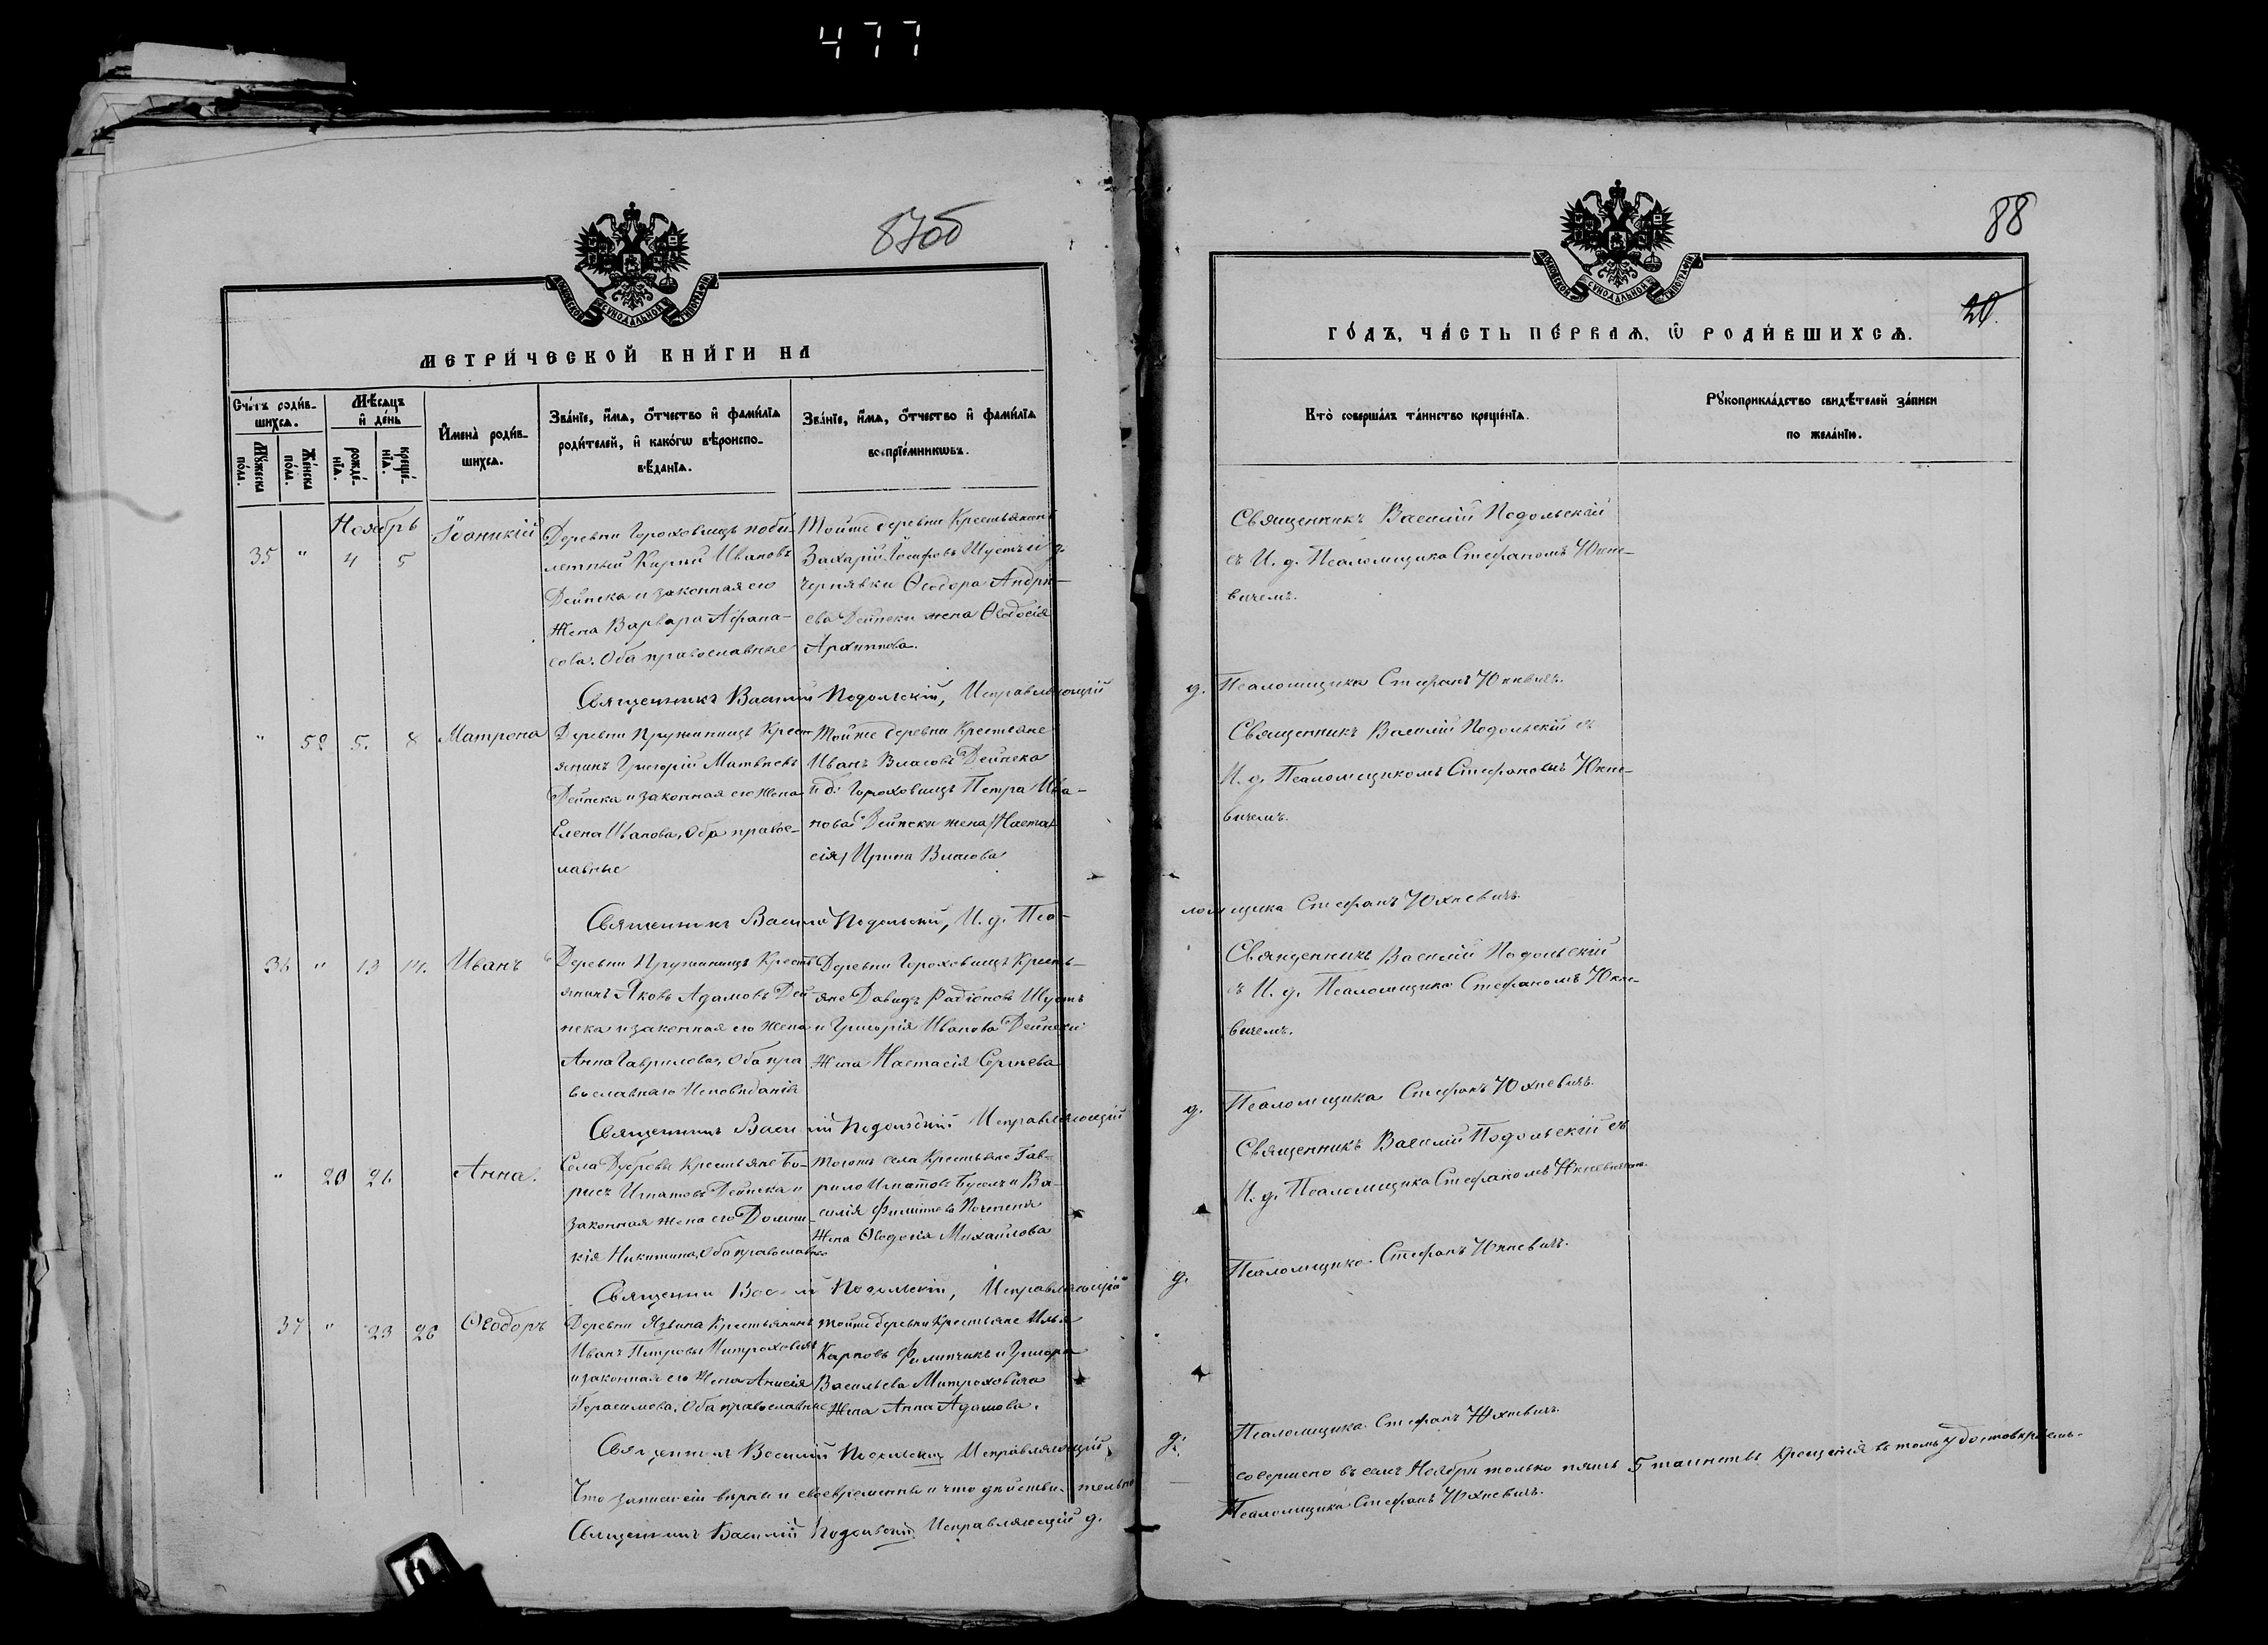 477
87об
МОСКОВСКОЙ СѴНОДАЛЬНОЙ ТИПОГРАФІИ
МЕТРИ́ЧЕСКОЙ КНИ́ГИ НА
Сче́тъ роди́в-
шихсѧ.
Мꙋ́жеска
по́ла.
Же́нска
по́ла.
Мѣ́сѧцъ
и҆ де́нь
рожде́-
нїѧ.
креще́-
нїѧ.
И҆мена̀ роди́в-
шихсѧ.
Зва́нїе, и҆́мѧ, о҆́тчество и҆ фами́лїѧ
роди́телей, и҆ како́гѡ вѣроиспо-
вѣ́данїѧ.
Зва́нїе, и҆́мѧ, о҆́тчество и҆ фами́лїѧ
воспрїе́мникѡвъ.
Ноябрь
35 " 4 5
Іоаникій
Деревни Гороховищъ
Ивановъ
Дейнека и законная его
Жена Варвара Афана-
сова. Оба православные
Тойже деревни Крестьянинъ
Захарій Іосифовъ Шустъ и д.
Чернявки Ѳеодора Андре-
ева Дейнеки жена Ѳеодосія
Архиппова.
Священникъ Василій Подольскій, Исправляющій
" 5. 8
Матрона
Деревни Пружинищъ Крест-
янинъ Григорій Матвѣевъ
Дейнека и законная его Жена
Елена Иванова, Оба правос-
лавные
Тойже деревни Крестьяне
Иванъ Власовъ Дейнека
и д: Гороховищъ Петра Ива-
нова Дейнеки жена /Наста-
сія/ Ирина Власова
Священникъ Василій Подольскій, И. д. Пса-
36 " 13 14.
Иванъ
Деревни Пружинищъ Кресть-
янинъ Яковъ Адамовъ Дей-
нека и законная его Жена
Анна Гаврилова, Оба пра-
вославнаго Исповѣданія
Деревни Гороховищъ Кресть-
яне Давидъ Радіоновъ Шустъ
и Григорія Иванова Дейнеки
Жена Настасія Сергѣева
Священникъ Василій Подольскій Исправляющій
" 20 21.
Анна.
Села Дубровы Крестьяне Бо-
рисъ Игнатовъ Дейнека и
законная жена его Домни-
кія Никитина, Оба православные
Тогожъ села Крестьяне Гав-
рило Игнатовъ и Ва-
силія
Жена Ѳеодосія Михайлова
Священни Василій Подольскій, Исправляющій
37 " 23 26
Ѳеодоръ
Деревни Язвина Крестьянинъ
Иванъ Петровъ Митроховичъ
и законная его Жена Анисія
Герасимова, Оба православные
тойже деревни Крестьяне Илья
Карповъ Филипчикъ и Григорія
Васильева Митроховича
Жена Анна Адамова.
Священникъ Василій Подольскій Исправляющій
Что записи сіи вѣрны и своевременны и что дѣйствительно
Священникъ Василій Подольскій Исправляющій д.
88
20.
МОСКОВСКОЙ СѴНОДАЛЬНОЙ ТИПОГРАФІИ
ГО́ДЪ, ЧА́СТЬ ПЕ́РВАѦ, Ѽ РОДИ́ВШИХСѦ.
Кто̀ соверша́лъ та́инство креще́нїѧ.
Рꙋкоприкла́дство свидѣ́телей за́писи
по жела́нїю.
Священникъ Василій Подольскій
съ И. д. Псаломщика Стефаномъ Юхне-
вичемъ.
д. Псаломщика Стефанъ Юхневичъ.
Священникъ Василій Подольскій съ
И. д. Псаломщикомъ Стефаномъ Юхне-
вичемъ.
ломщика Стефанъ Юхневичъ.
Священникъ Василій Подольскій
съ И. д. Псаломщика Стефаномъ Юхне-
вичемъ.
д. Псаломщика Стефанъ Юхневичъ.
Священникъ Василій Подольскій съ
И. д. Псаломщика Стефаномъ Юхневичемъ.
д. Псаломщика Стефанъ Юхневичъ.
д. Псаломщика Стефанъ Юхневичъ.
совершено въ семъ Ноябрѣ только пять 5 таинствъ Крещенія въ томъ удостовѣряемъ.
Псаломщика Стефанъ Юхневичъ.